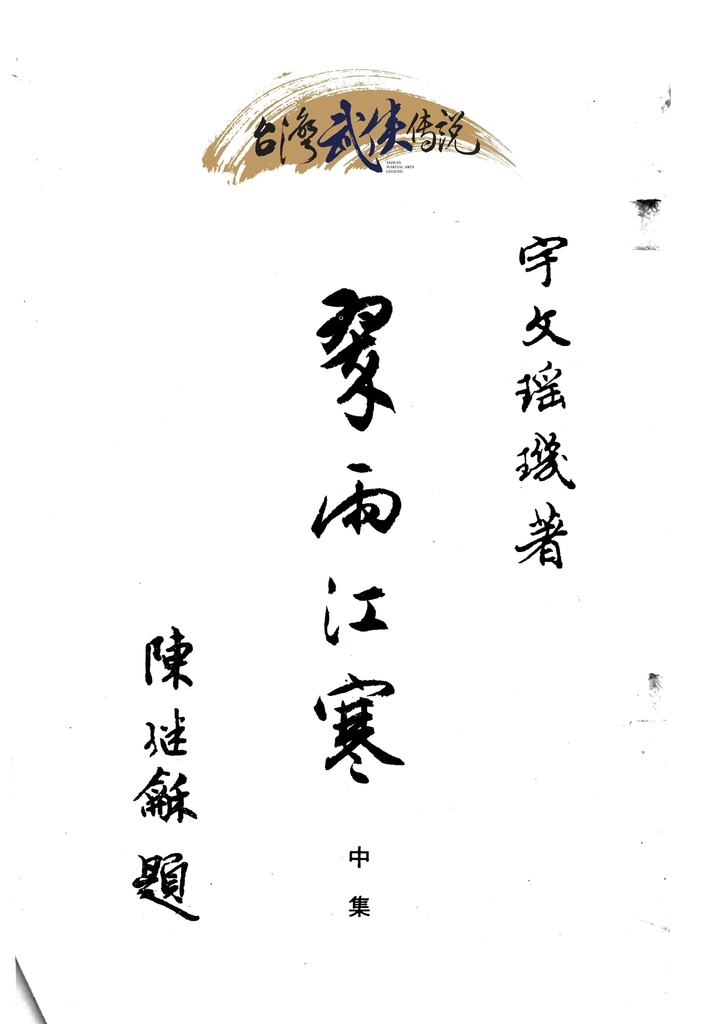 台灣武俠传説
TAIWAN
MARTIAL ARTS
LEGEND
宇文瑶璣著
翠雨江寒
中集
陳继龢題